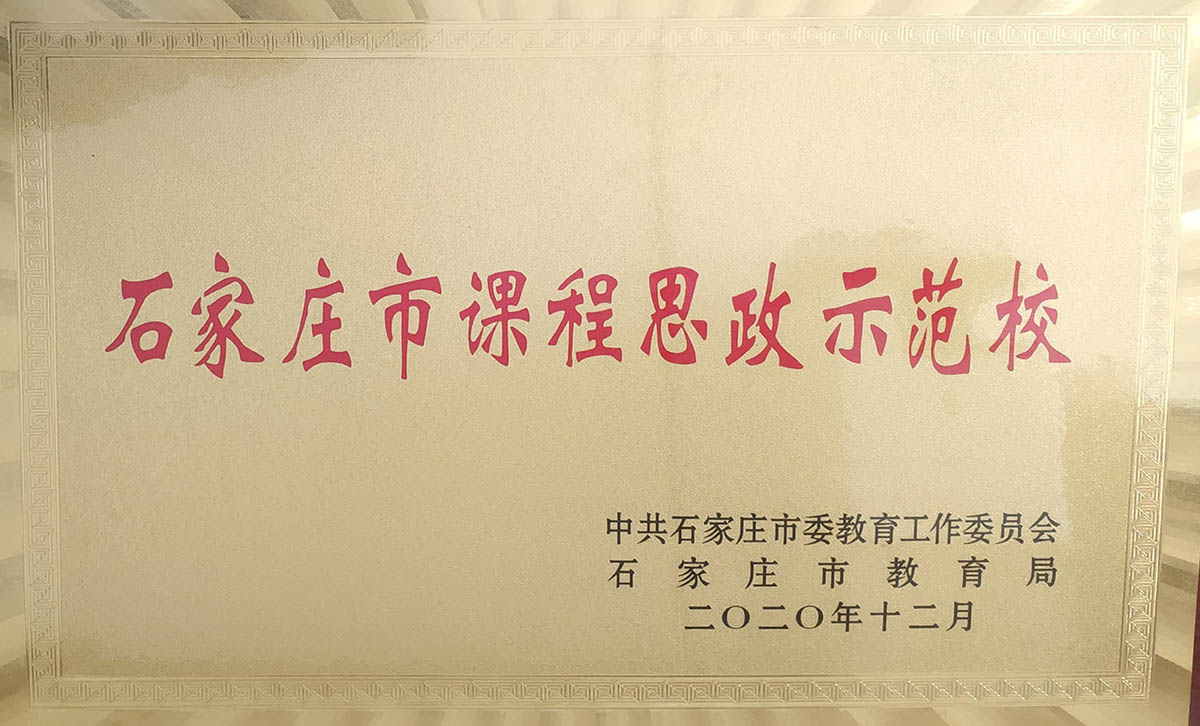 石家庄市课程思政示范校
中共石家庄市委教育工作委员会
石家庄市教育局
二〇二〇年十二月